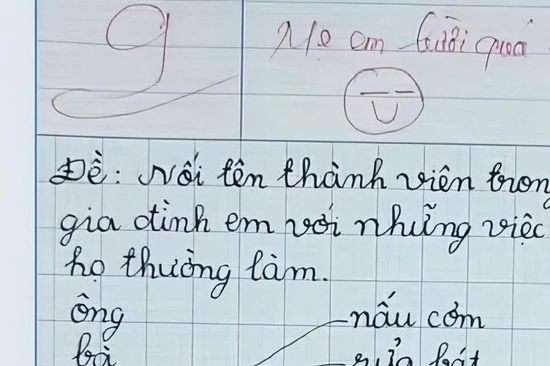 9 Mẹ em lười quá
Đề: Nối tên thành viên tron
gia đình em với những việc
họ thường làm.
ông nấu cơm
bà rửa bát